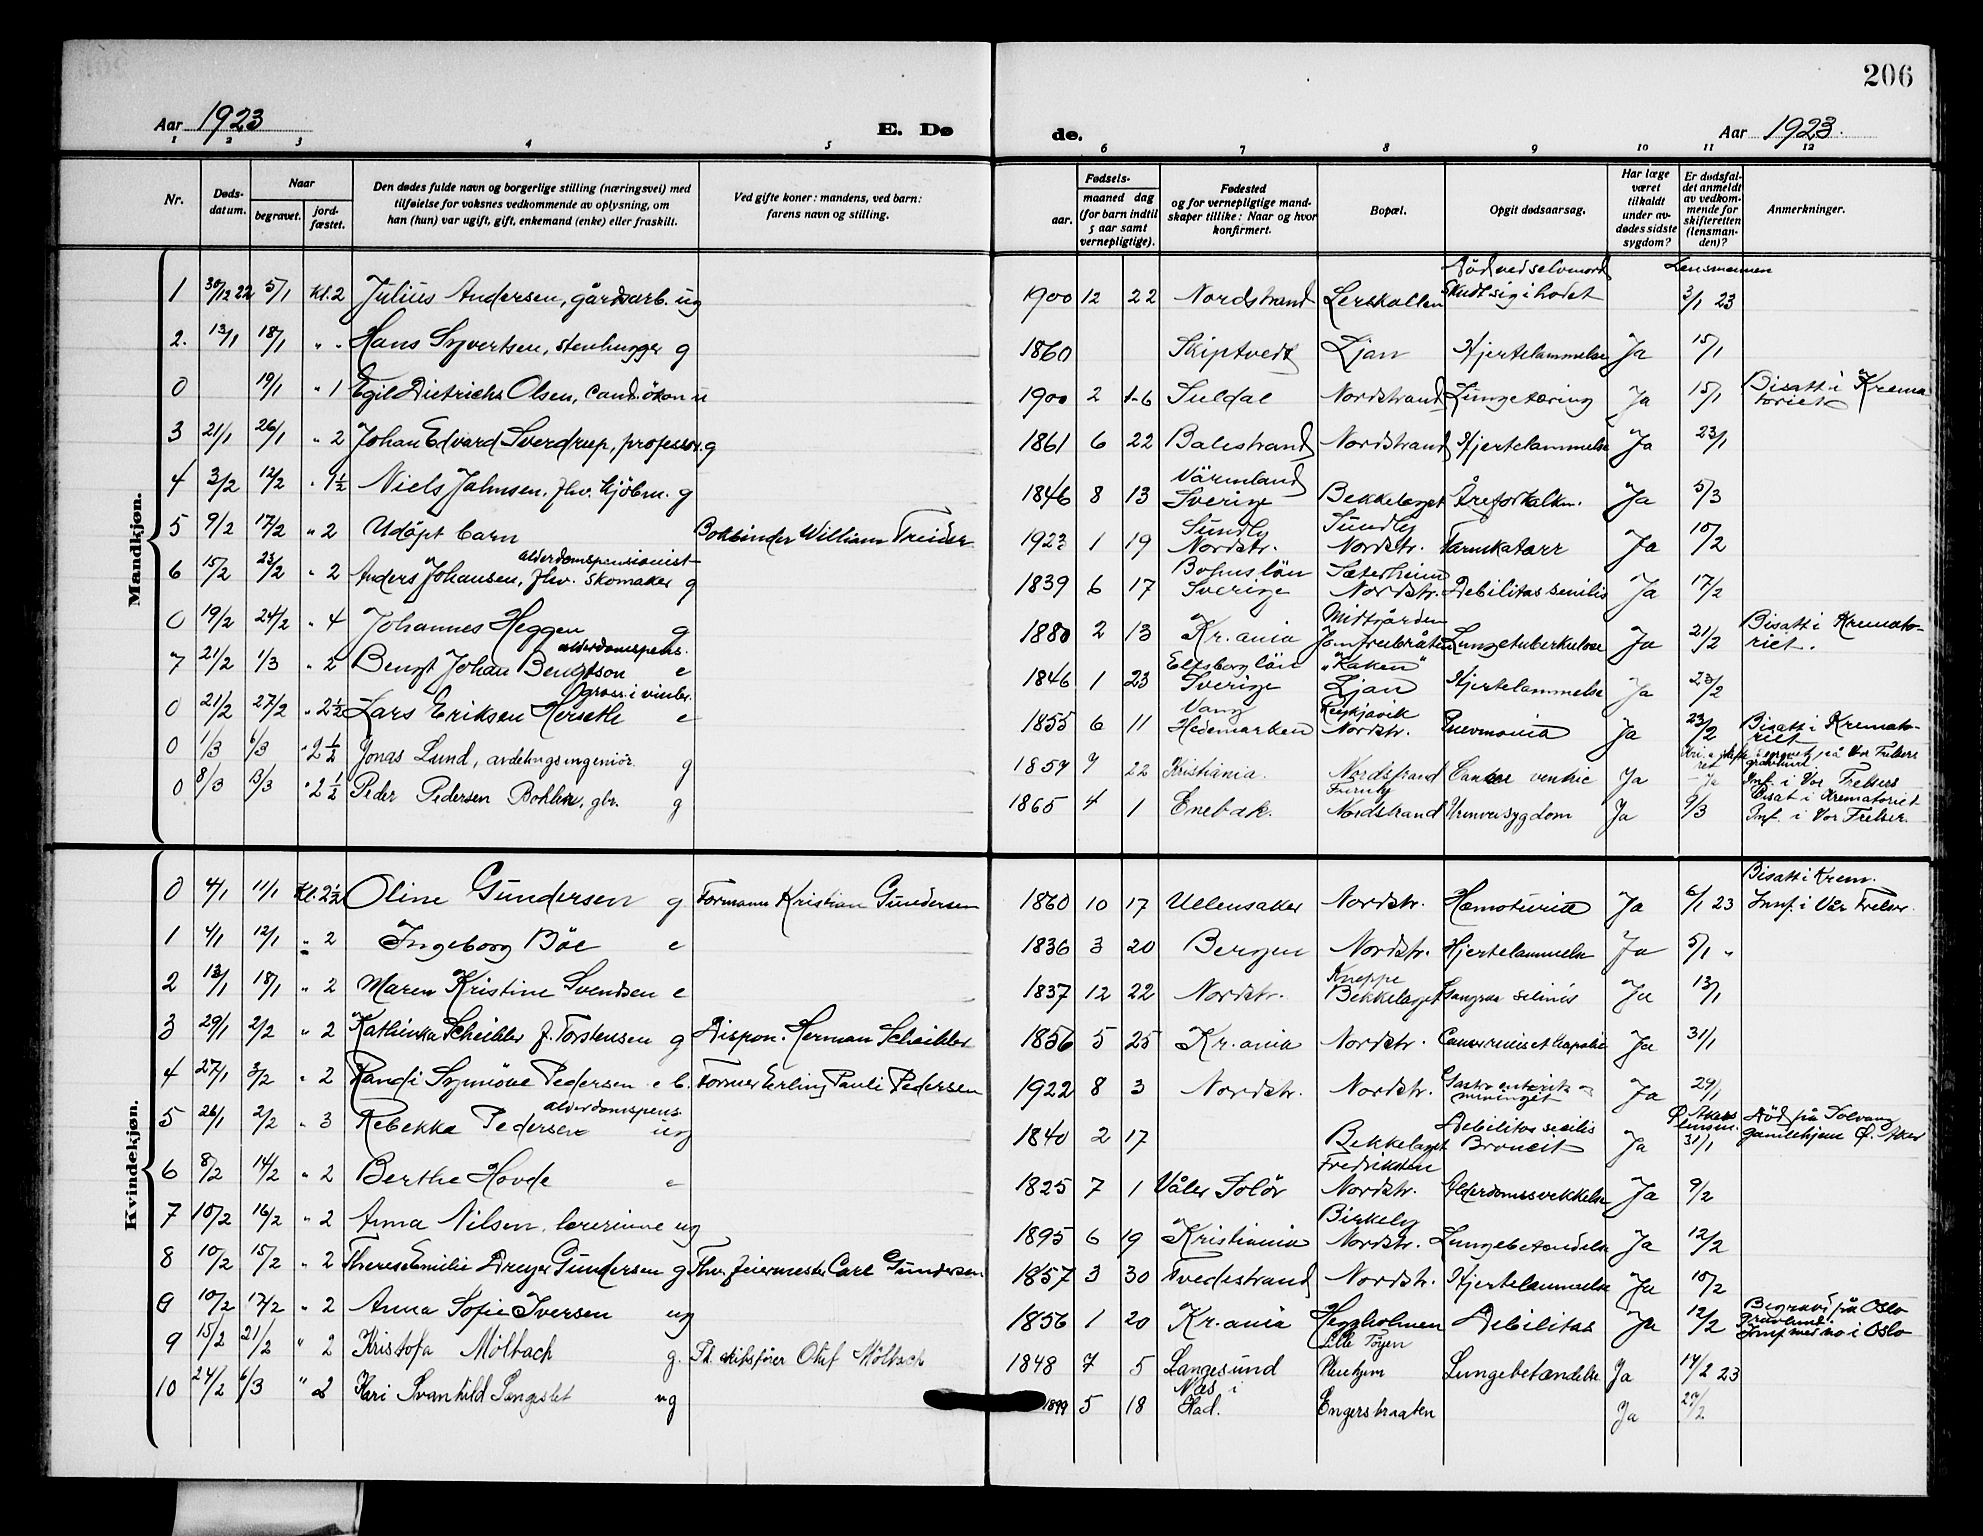 206
Aar 1923
E. Dø
de.
Aar 1923.
1 2 3 4 5 6 7 8 9 10 11 12
Nr.
Døds-datum.
Naar
begravet.
jord-fæstet.
Den dødes fulde navn og borgerlige stilling (næringsvei) med
tilføielse for voksnes vedkommende av oplysning, om
han (hun) var ugift, gift, enkemand (enke) eller fraskilt.
Ved gifte koner: mandens, ved barn:
farens navn og stilling.
Fødsels-
aar.
maaned dag
(for barn indtil
5 aar samt
vernepligtige).
Fødested
og for vernepligtige mand-
skaper tillike: Naar og hvor
konfirmert.
Bopæl.
Opgit dødsaarsag.
Har læge
været
tilkaldt
under av-
dødes sidste
sygdom?
Er dødsfal-
det anmeldt
av vedkom-
mende for
skifteretten
(lensman-
den)?
Anmerkninger.
Mandkjøn.
Død ved selvmord Lensmannen
1 30/12 22 5/1 Kl. 2 Julius Andersen, gårdsarb. ug 1900 12 22 Nordstrand Lerskallen Skudt sig i hodet 3/1 23
2. 13/1 18/1 " " Hans Syvertsen, stenhugger g 1860 Skiptvedt Ljan Hjertelammelse Ja 15/1
0 19/1 " 1 Egil Dietrichs Olsen, cand. økon u 1900 2 16 Suldal Nordstrand Lungetæring Ja 15/1 Bisatt i Krema
toriet
3 21/1 26/1 " 2 Johan Edvard Sverdrup, professor. g 1861 6 22 Balestrand Nordstrand Hjertelammelse Ja 23/1
Värmland
4 3/2 12/2 " 1½ Niels Jahnsen, fhv. kjøbm. g 1846 8 13 Sverige Bekkelaget Åreforkalkn. Ja 5/3
Sundby Sundby
5 9/2 17/2 " 2 Udøpt barn Bokbinder William Treider 1923 1 19 Nordstr. Nordstr. Tarmkatarr Ja 10/2
alderdomspensionist Bohuslän Sæterheim
6 15/2 23/2 " 2 Anders Johansen, fhv. skomaker g 1839 6 17 Sverige Nordstr. Debilitas senilis Ja 17/2
Midtgården
0 19/2 24/2 " 4 Johannes Heggen g 1880 2 13 Kr.ania Jomfrubråten Lungetuberkulose Ja 21/2 Bisatt i Kremato-
riet.
alderdomspens. Elfsborg län "Kaken"
7 21/2 1/3 " 2 Bengt Johan Bengtson e 1846 1 23 Sverige Ljan Hjertelammelse Ja 23/2
Vang Reykjavik
0 21/2 27/2 " 2½ Lars Eriksen Herseth e 1855 6 11 Hedemarken Nordstr. Pnevmonia Ja 23/2 Bisatt i Kremato-
riet
0 1/3 6/3 " 2½ Jonas Lund, avdelingsingeniør g 1857 7 22 Kristiania. Nordstrand Cancer ventric Ja Ja Inf. i Vor Frelsers
Furuly Bisat i Krematoriet
0 8/3 13/3 " 2½ Peder Pedersen Bohler, gbr. g 1865 4 1 Enebak. Nordstrand Urinveisygdom Ja 9/3 Inf. i Vor Frelser.
Kvindekjøn.
Bisatt i Krem.
0 4/1 11/1 Kl. 2½ Oline Gundersen g Formann Kristian Gundersen 1860 10 17 Ullensaker Nordstr. Hæmoturia Ja 6/1 23 Innf. i Vår Frelser.
1 4/1 12/1 " 2 Ingeborg Böe e 1836 3 20 Bergen Nordstr. Hjertelammelse Ja 5/1 "
Kneppe
2 13/1 18/1 " 2 Maren Kristine Svendsen e 1837 12 22 Nordstr. Bekkelaget Gangræn selinis Ja 13/1
3 29/1 2/2 " 2 Kathinka Scheibler f. Torstensen g Dispon. Herman Scheibler 1856 5 25 Kr.ania Nordstr. Cancer renis et hepatis Ja 31/1
4 27/1 3/2 " 2 Randi Synnöve Pedersen e b. Former Erling Pauli Pedersen 1922 8 3 Nordstr. Nordstr. Gastro enterit og
meninget Ja 29/1
alderdomspens. Debilitas senilis Ø. Akers
lensm. Død på Solvang
5 26/1 2/2 " 3 Rebekka Pedersen ug 1840 2 17 Bekkelaget Broncit Ja 31/1 gamlehjem Ø. Aker
Fredriksten
6 8/2 14/2 " 2 Berthe Hovde e 1825 7 1 Våler Solør Nordstr. Alderdomssvekkelse Ja 9/2
Birkely
7 10/2 16/2 " 2 Anna Nilsen, lærerinne ug 1895 6 19 Kristiania Nordstr. Lungebetændelse Ja 12/2
8 10/2 15/2 " 2 Therese Emilie Dreyer Gundersen g Fhv. feiermester Carl Gundersen 1857 3 30 Tvedestrand Nordstr. Hjertelammelse Ja 10/2
Begravd på Oslo
gravlund.
0 10/2 17/2 " 2 Anna Sofie Iversen ug 1856 1 20 Kr.ania Heggholmen Debilitas Ja 12/2 Innf med no i Oslo
Lille Tøyen
9 15/2 21/2 " 2 Kristofa Mölbach g. Skibsfører Oluf Mölbach 1848 7 5 Langesund Pleiehjem Lungebetændelse Ja 17/2 23
Næs i
10 24/2 6/3 " 2 Kari Svanhild Langslet ug 1899 5 18 Had. Engerbraaten Ja 27/2